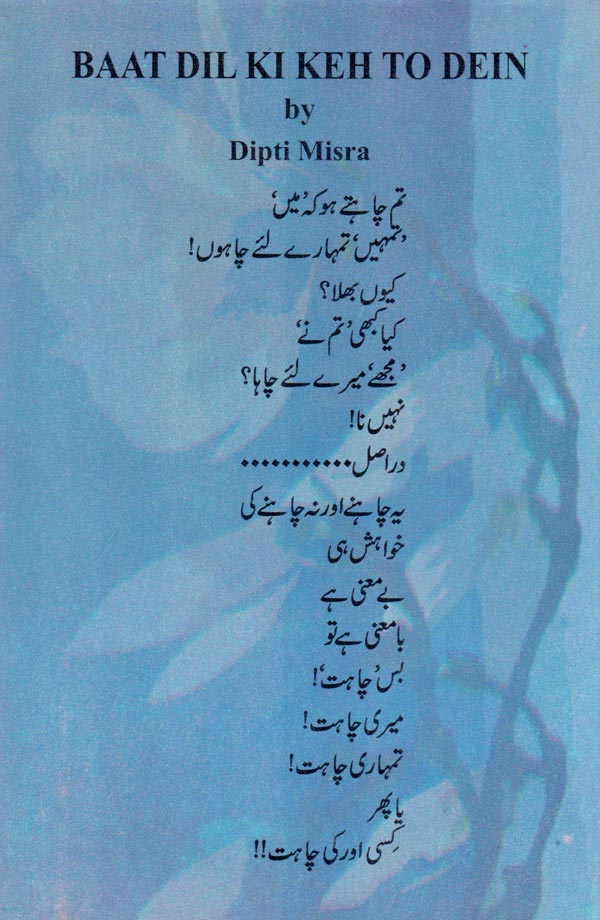 BAAT DIL KI KEH TO DEIN
by
Dipti Misra
تم چاہتے ہو کہ ’میں‘
’تمہیں‘ تمہارے لئے چاہوں!
کیوں بھلا؟
کیا کبھی ’تم نے‘
’مجھے‘ میرے لئے چاہا؟
نہیں نا!
دراصل............
یہ چاہنے اور نہ چاہنے کی
خواہش ہی
بے معنی ہے
بامعنی ہے تو
بس ’چاہت‘!
میری چاہت!
تمہاری چاہت!
یا پھر
کِسی اور کی چاہت!!